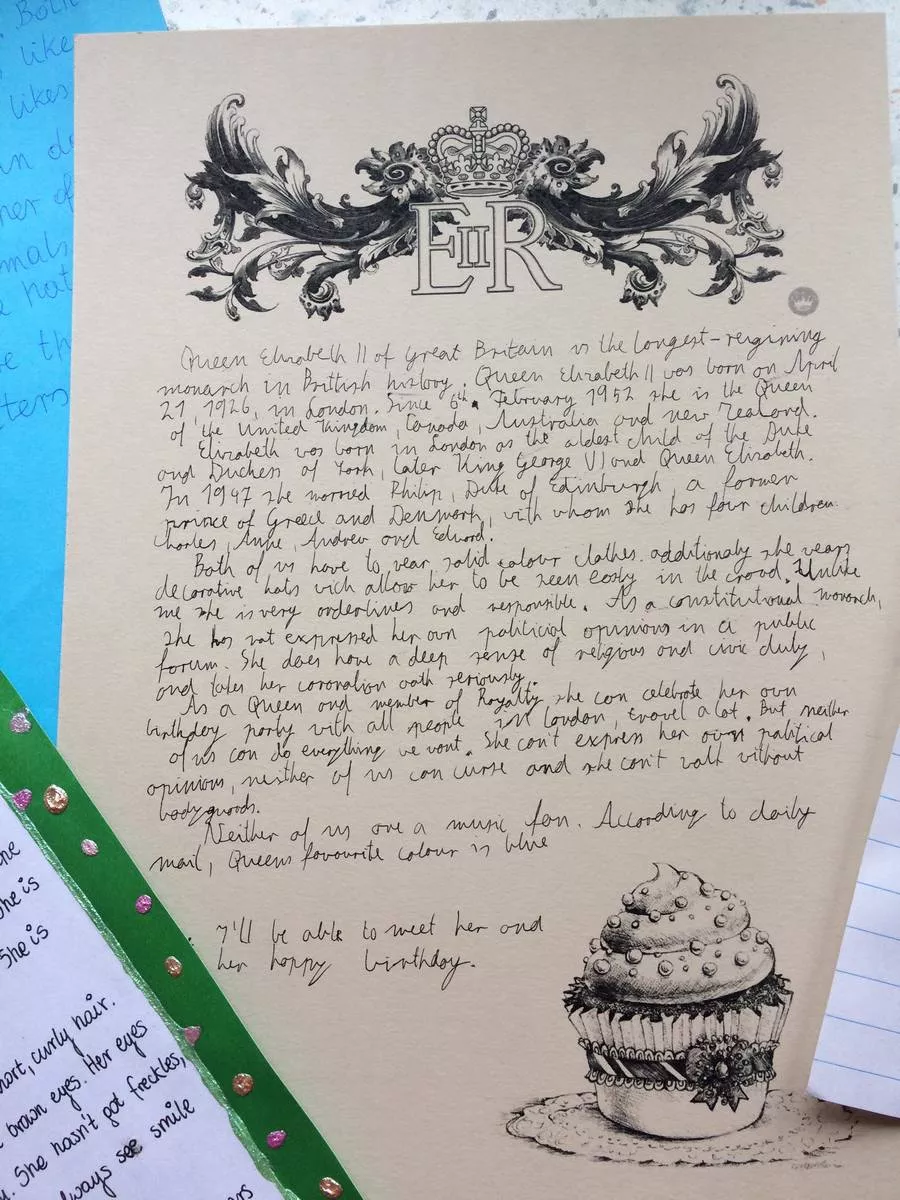 Both
like
likes
in d
ner of
mals
e not
e th
ters
EIIR
Queen Elizabeth II of Great Britain is the longest-reigining
monarch in British history. Queen Elizabeth II was born on April
21, 1926, in London. Since 6th February 1952 she is the Queen
of the United Kingdom, Canada, Australia and new Zealand.
Elizabeth was born in London as the aldest child of the Duke
and Duchess of York, later King George VI and Queen Elizabeth.
In 1947 she married Philip, Duke of Edinburgh, a former
prince of Greece and Denmark, with whom she has four children:
Charles, Anne, Andrew and Edward.
Both of us have to wear solid colour clothes. additionaly she wears
decorative hats wich allow her to be seen easly in the crowd. Unlike
me she is very orderlines and responsible. As a constitutional monarch,
she has not expressed her own politicial opinious in a public
forum. She does have a deep sense of religious and civic duty,
and takes her coronation oath seriously.
As a Queen and member of Royalty she can celebrate her own
birthday party with all people in london, travel a lot. But neither
of us can do everything we want. She can't express her own political
opinions, neither of us can curse and she can't walk without
bodyguards.
Neither of us are a music fan. According to daily
mail, Queens favourite colour is blue
I'll be able to meet her and
her happy birthday.
she
She is
She is
hort, curly hair.
brown eyes. Her eyes
. She hasn't got freckles,
lways see smile
ers